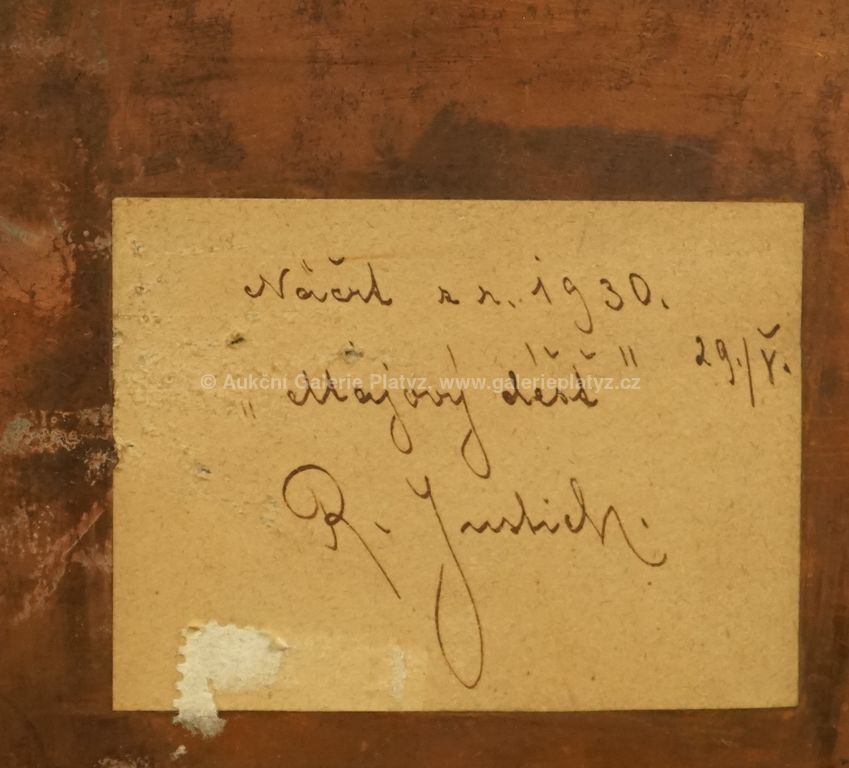 Náčrt z r. 1930.
„Májový déšť" 29./V.
© Aukční Galerie Platýz, www.galerieplatyz.cz
R. Justich.